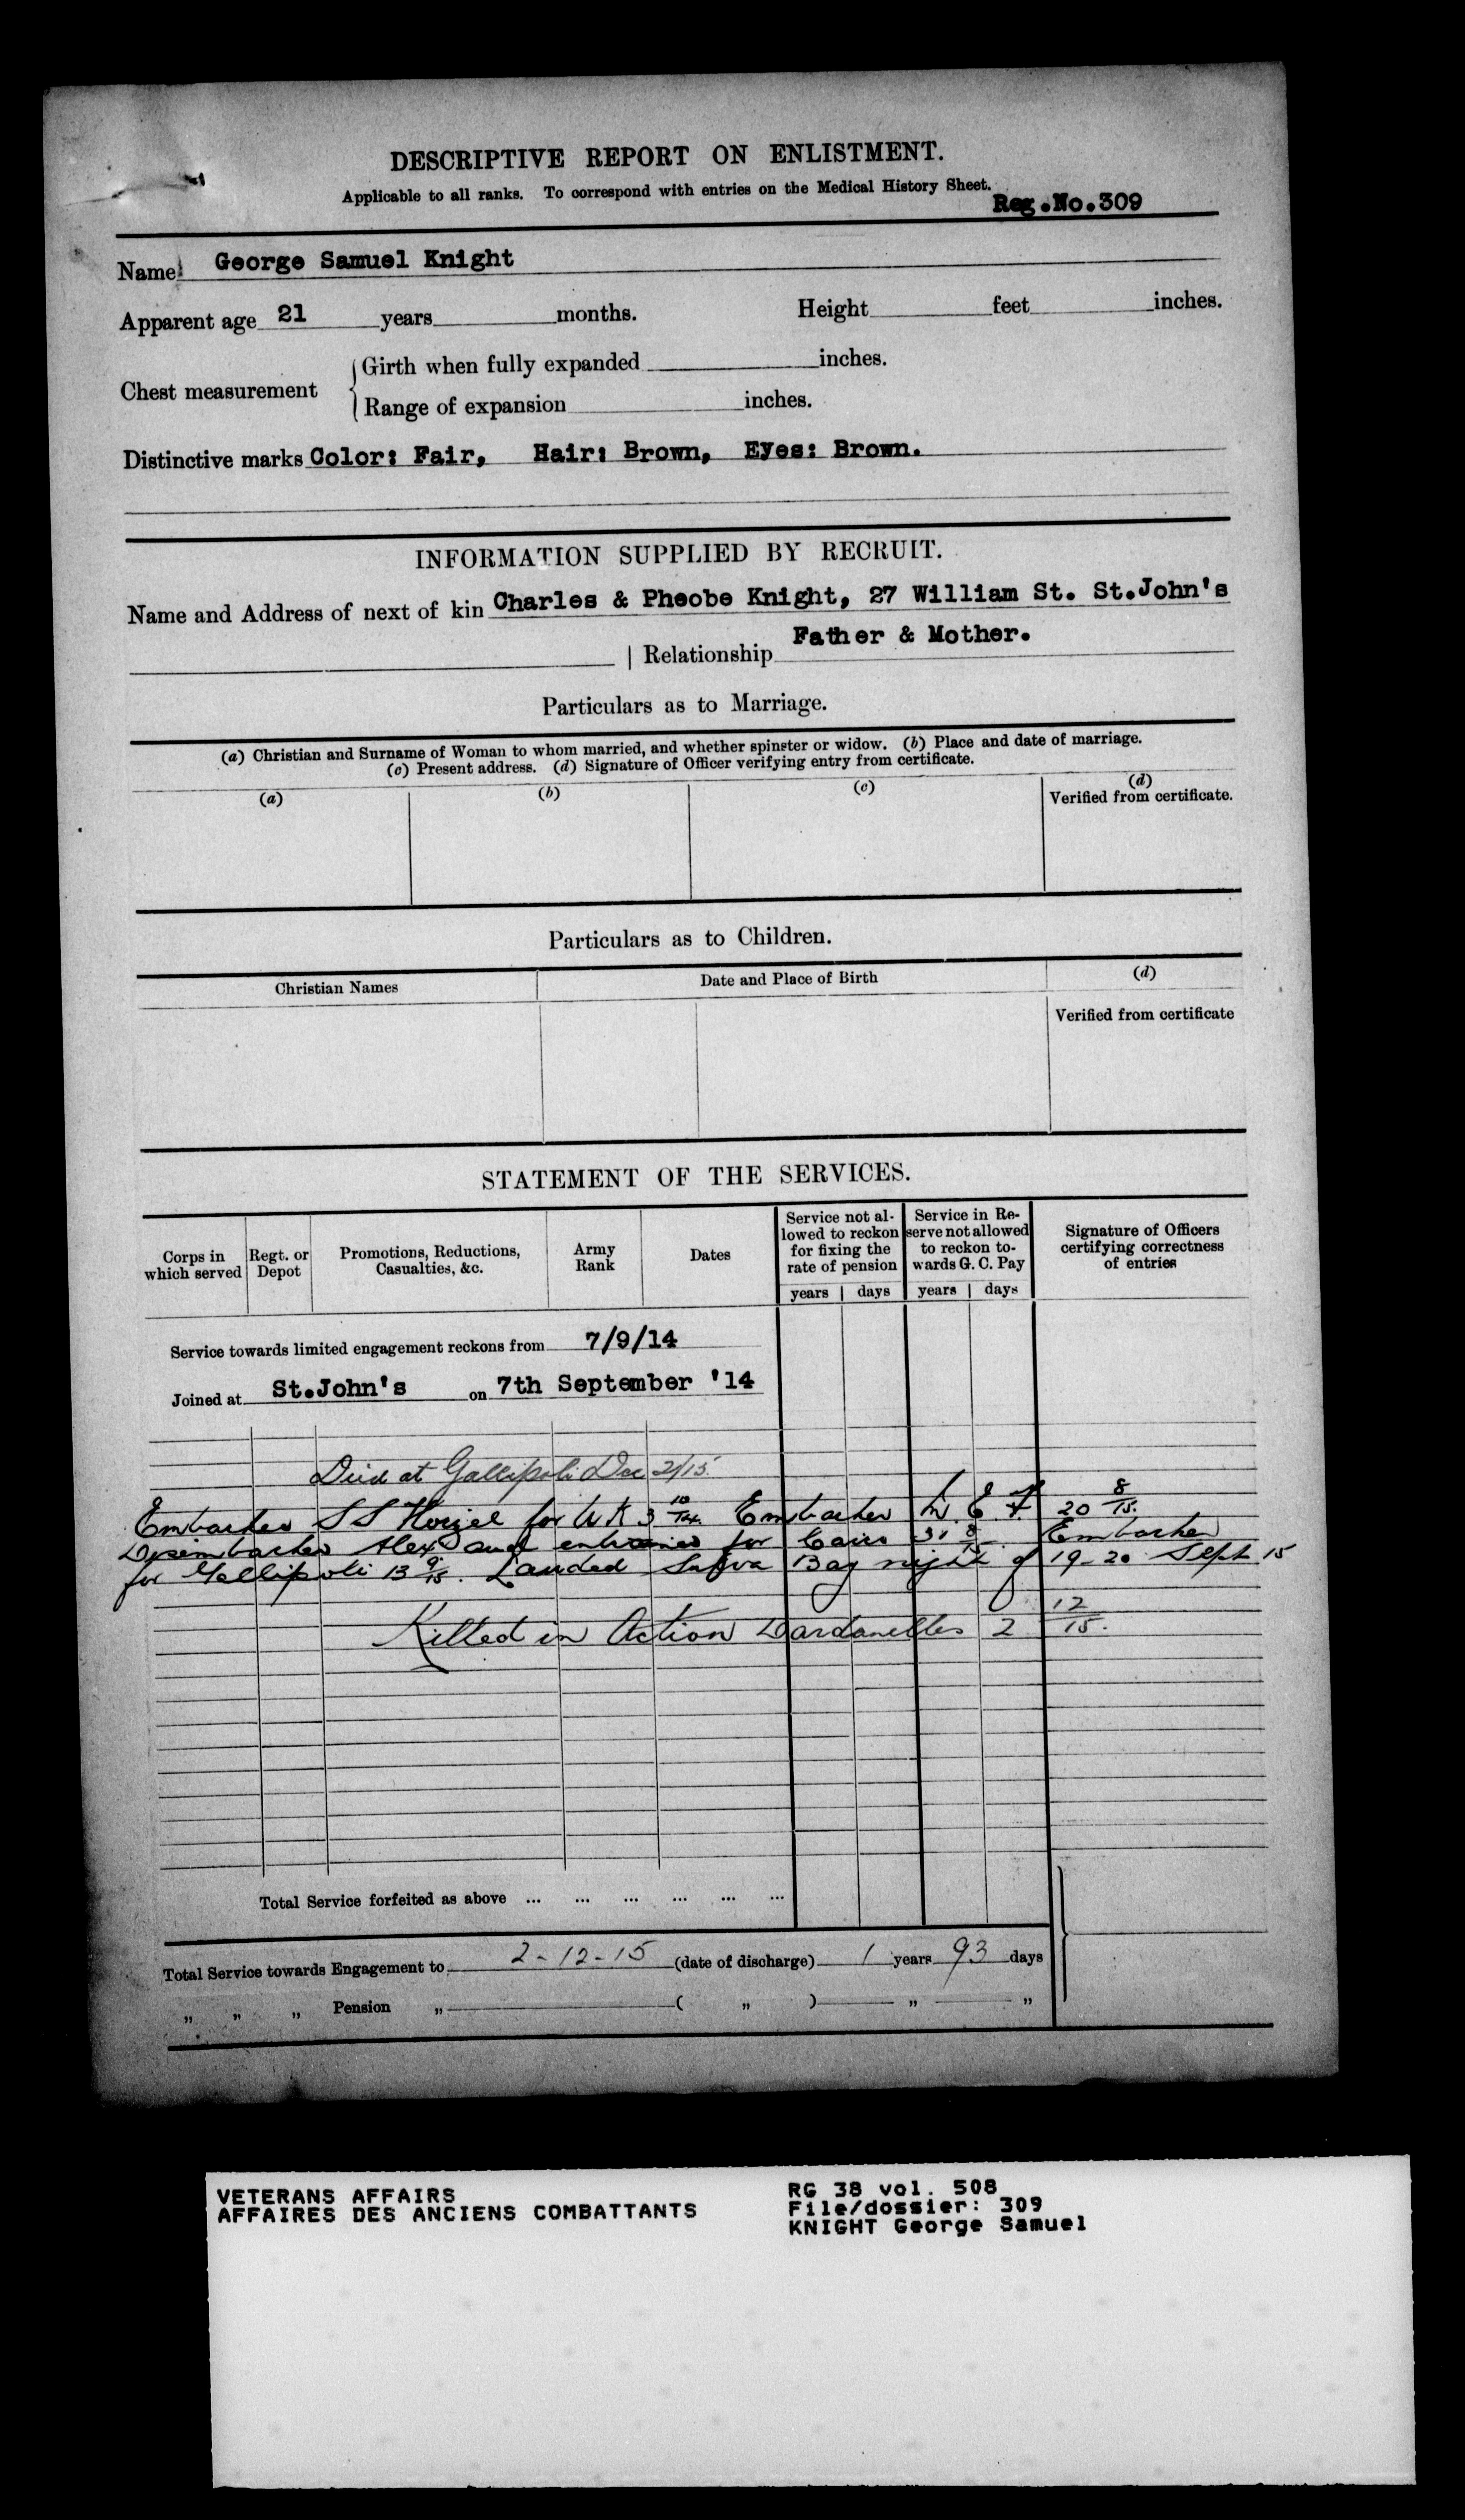 DESCRIPTIVE REPORT ON ENLISTMENT.
Applicable to all ranks. To correspond with entries on the Medical History Sheet.
Reg.No.309
Name George Samuel Knight
Apparent age 21 years months. Height feet inches.
Chest measurement
Girth when fully expanded inches.
Range of expansion inches.
Distinctive marks Color: Fair, Hair: Brown, Eyes: Brown.
INFORMATION SUPPLIED BY RECRUIT.
Name and Address of next of kin Charles & Pheobe Knight, 27 William St. St.John's
| Relationship Father & Mother.
Particulars as to Marriage.
(a) Christian and Surname of Woman to whom married, and whether spinster or widow. (b) Place and date of marriage.
(c) Present address. (d) Signature of Officer verifying entry from certificate.
(a) (b) (c) (d)
Verified from certificate.
Particulars as to Children.
Christian Names Date and Place of Birth (d)
Verified from certificate
STATEMENT OF THE SERVICES.
Corps in which served
Regt. or Depot
Promotions, Reductions, Casualties, &c.
Army Rank
Dates
Service not allowed to reckon for fixing the rate of pension
Service in Reserve not allowed to reckon towards G. C. Pay
Signature of Officers certifying correctness of entries
years | days years | days
Service towards limited engagement reckons from 7/9/14
Joined at St.John's on 7th September '14
Died at Gallipoli Dec 2/15.
Embarked S S for U K 3 10/14. Embarked E F 20 8/15.
Disembarked Alex and entrained for Cairo 31 8/15 Embarked
for Gallipoli 13 9/15. Landed Suvla Bay night of 19-20 Sept 15
Killed in Action Dardanelles 2 12/15.
Total Service forfeited as above ... ... ... ... ... ...
Total Service towards Engagement to 2-12-15 (date of discharge) 1 years 93 days
" " " Pension " ( " ) " "
VETERANS AFFAIRS
AFFAIRES DES ANCIENS COMBATTANTS
RG 38 vol. 508
File/dossier: 309
KNIGHT George Samuel